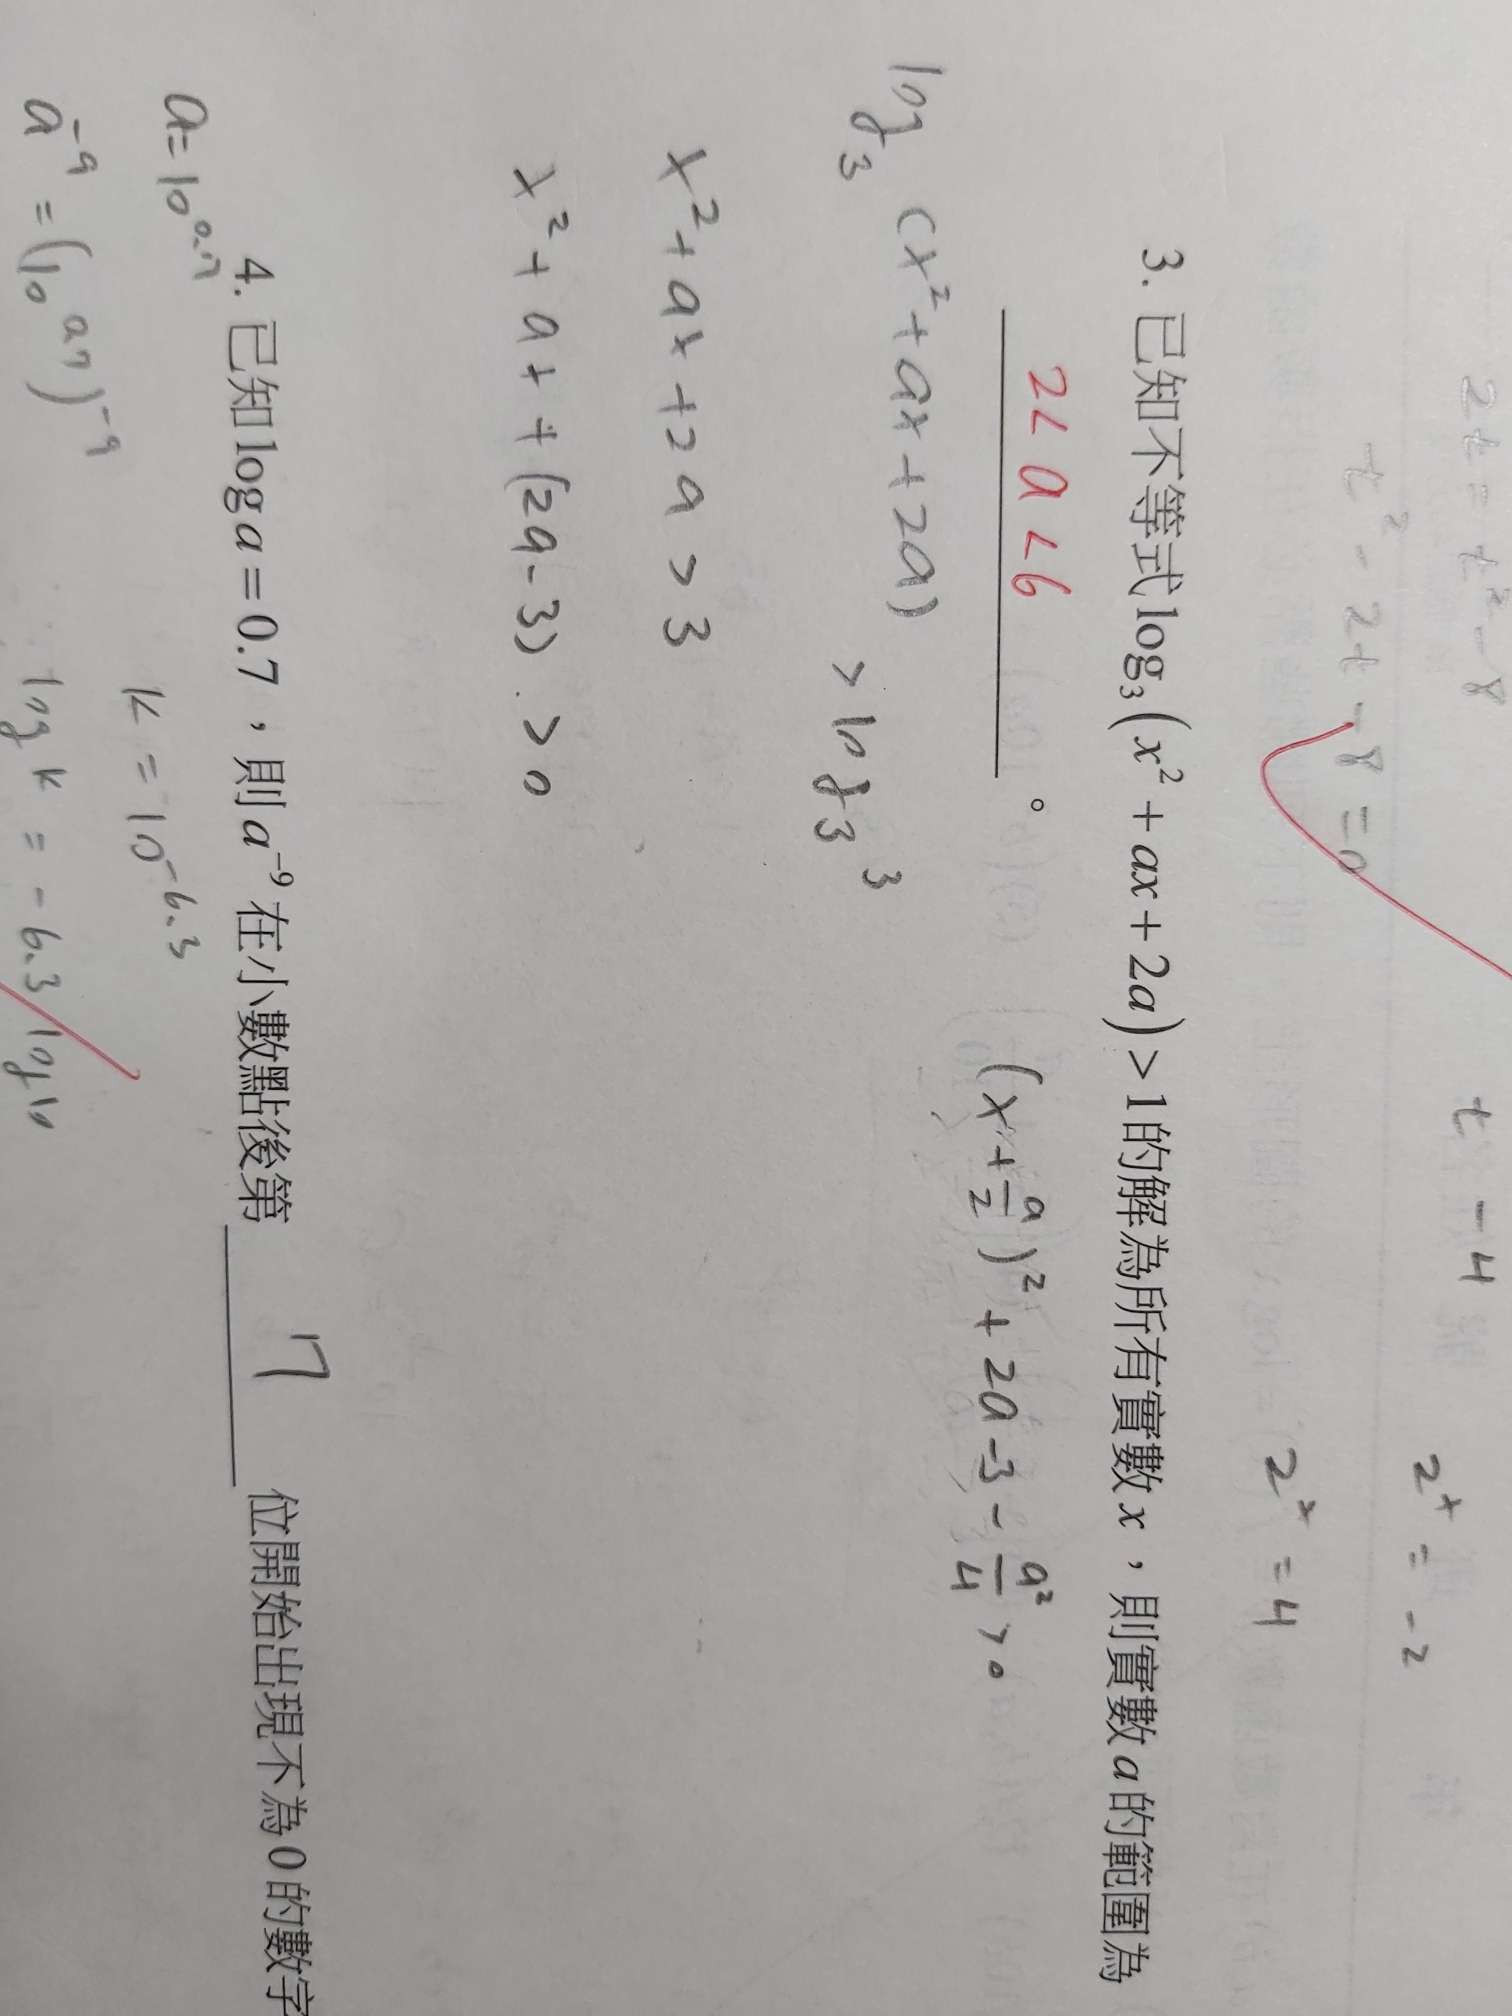 2t = t² - 8
t² - 2t - 8 = 0
t -4
2ˣ = -2
2ˣ = 4
3. 已知不等式log₃(x² + ax + 2a) > 1的解為所有實數x，則實數a的範圍為
2 < a < 6 。
(x + a/2)² + 2a - 3 - a²/4 > 0
log₃ (x² + ax + 2a) > log₃ 3
x² + ax + 2a > 3
x² + ax + (2a - 3) > 0
4. 已知log a = 0.7，則a⁻⁹在小數點後第 7 位開始出現不為0的數字
a = 10^0.7
k = 10^-6.3
a⁻⁹ = (10^0.7)⁻⁹
log k = -6.3 log 10